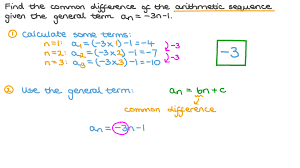 Find the common difference of the arithmetic sequence
given the general term aₙ = -3n-1.
① Calculate some terms:
n=1: a₁ = (-3×1) -1 = -4
n=2: a₂ = (-3×2) -1 = -7
n=3: a₃ = (-3×3) -1 = -10
-3
-3
-3
② Use the general term: aₙ = bn + c
common difference
aₙ = -3n-1